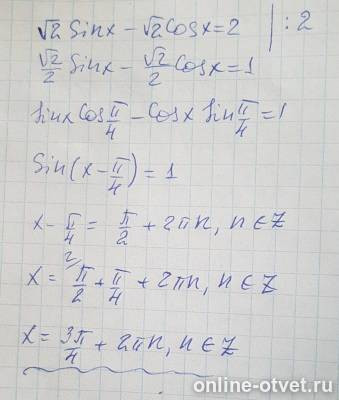 √2 Sinx - √2 Cosx = 2 | : 2
√2/2 Sinx - √2/2 Cosx = 1
Sinx Cos π/4 - Cosx Sin π/4 = 1
Sin(x - π/4) = 1
x - π/4 = π/2 + 2πn, n ∈ Z
x = π/2 + π/4 + 2πn, n ∈ Z
x = 3π/4 + 2πn, n ∈ Z
online-otvet.ru